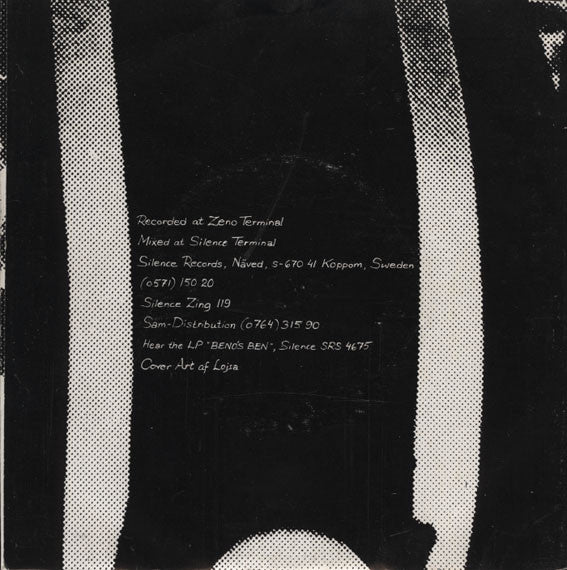 Recorded at Zeno Terminal
Mixed at Silence Terminal
Silence Records, Näved, S-670 41 Koppom, Sweden
(0571) 150 20
Silence Zing 119
Sam-Distribution (0764) 315 90
Hear the LP "BENO'S BEN", Silence SRS 4675
Cover Art af Lojsa